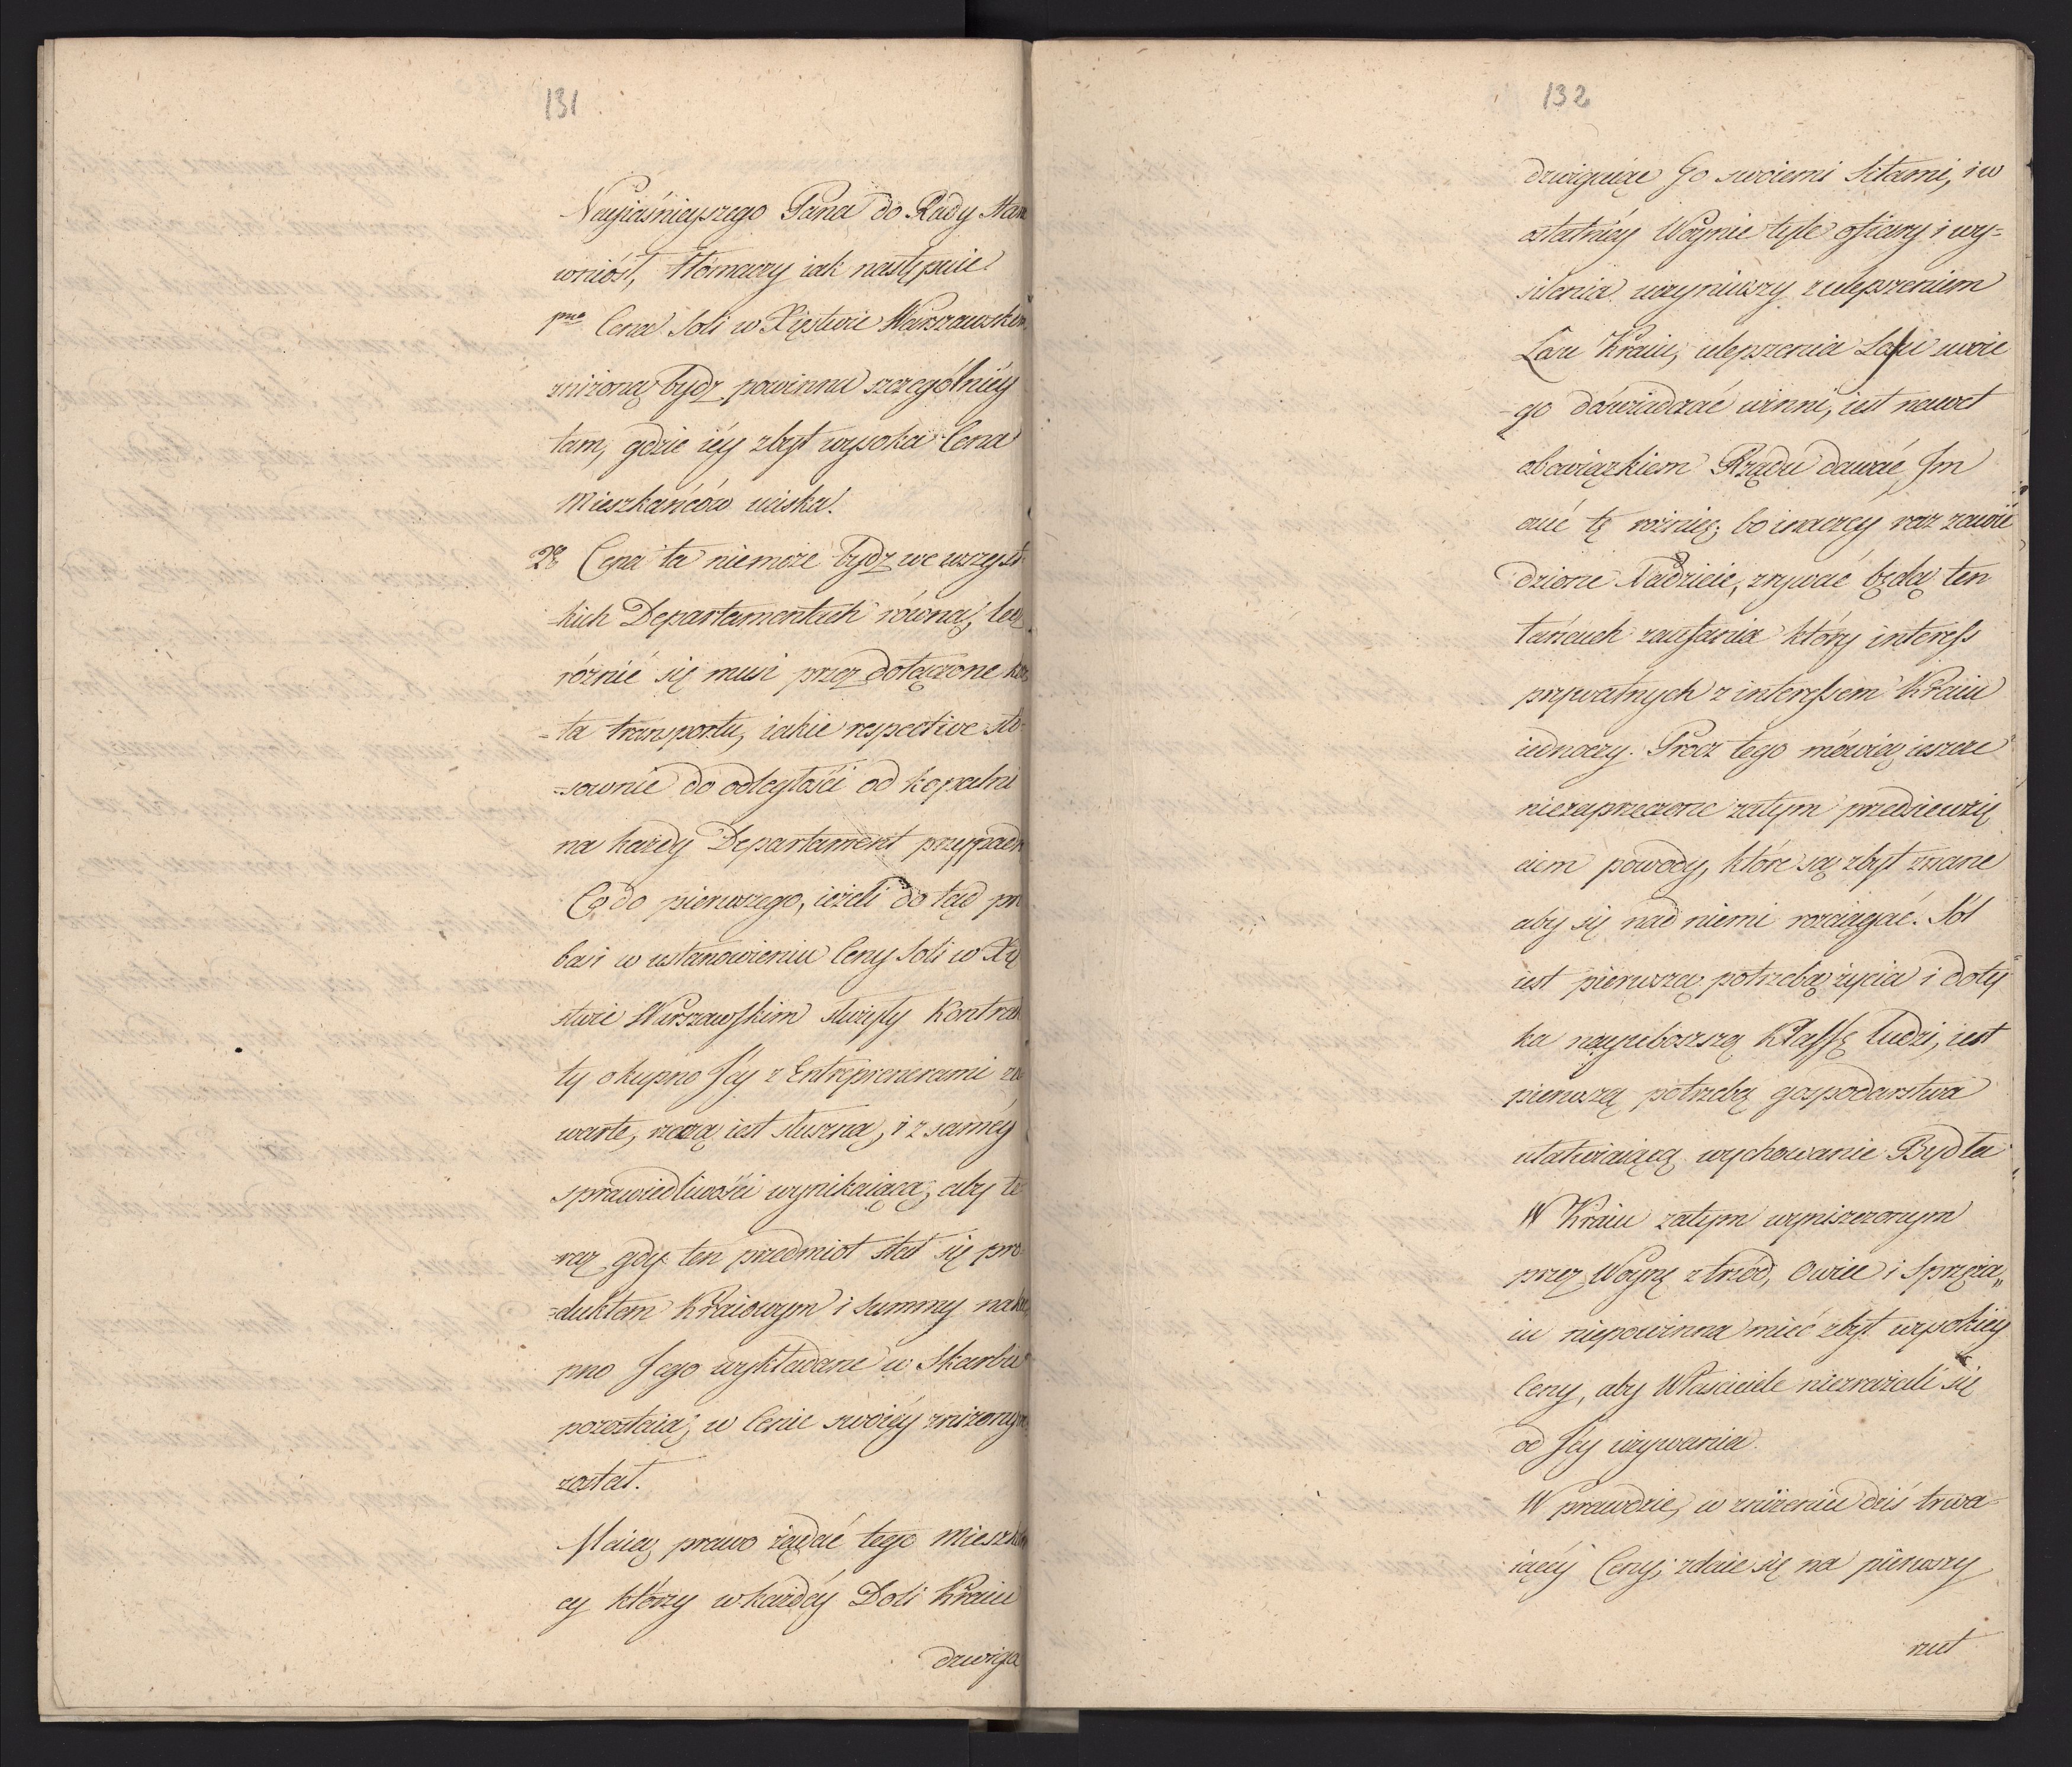 131
Nayiaśnieyszego Pana do Rady Stan
wniósł, tłómaczy iak następuie.
pmo Cena Soli w Xięstwie Warszawskim
zniżoną bydz powinna szczególniéy
tam, gdzie iéy zbyt wysoka Cena
Mieszkańców uciska.
2o Cena ta niemoże bydz we wszyst-
kich Departamentach równą, lecz
różnić się musi przez dołączone kosz
=ta transportu, iakie respective sto-
=sownie do odległości od kopalni
na każdy Departament przypadn
Co do pierwszego, ieżeli do tąd pr
basi w ustanowieniu Ceny Soli w Xię
stwie Warszawskim służyły Kontrak
ty o kupno Jéy z Entreprenerami za
warte, rzeczą iest słuszną, i z saméy
sprawiedliwości wynikaiącą, aby te
raz gdy ten przedmiot stał się pro-
=duktem Kraiowym i Summy na ku
pno Jego wykładane w Skarbu
pozostaią, w Cenie swoiéy zniżonym
został.
Maią prawo żądać tego Mieszkań
cy którzy w każdéy Doli Kraiu
dzwiga
132
dzwigaiąc Go swoiemi Siłami, i w
ostatniéy Woynie tyle ofiary i wy=
silenia uczyniwszy z ulepszeniem
Losu Kraiu, ulepszenia Losu swoie
-go doświadczać winni, iest nawet
obowiązkiem Rządu dawać Im
czuć tę rożnicę, bo inaczey raz zawie
dzione Nadzieie, zrywać będą ten
łańcuch zaufania który interess
prywatnych z interessem Kraiu
iednoczy. Procz tego mówią ieszcze
niezaprzeczone zatym przedsiewzię
ciem powody, które są zbyt znane
aby się nad niemi rozciągać. Sól
iest pierwszą potrzebą życia i doty
ka nayuboszszą Klassę ludzi, iest
pierwszą potrzebą gospodarstwa
ułatwiaiącą wychowanie Bydła
W Kraiu zatym wyniszczonym
przez Woynę z trzód, Owiec i Sprzęża„
iu niepowinna mieć zbyt wysokiéy
Ceny, aby Właściciele niezrażali się
od Jéy używania.
W prawdzie, w zniżeniu dziś trwa-
iącéy Ceny, zdaie się na pierwszy
rzut